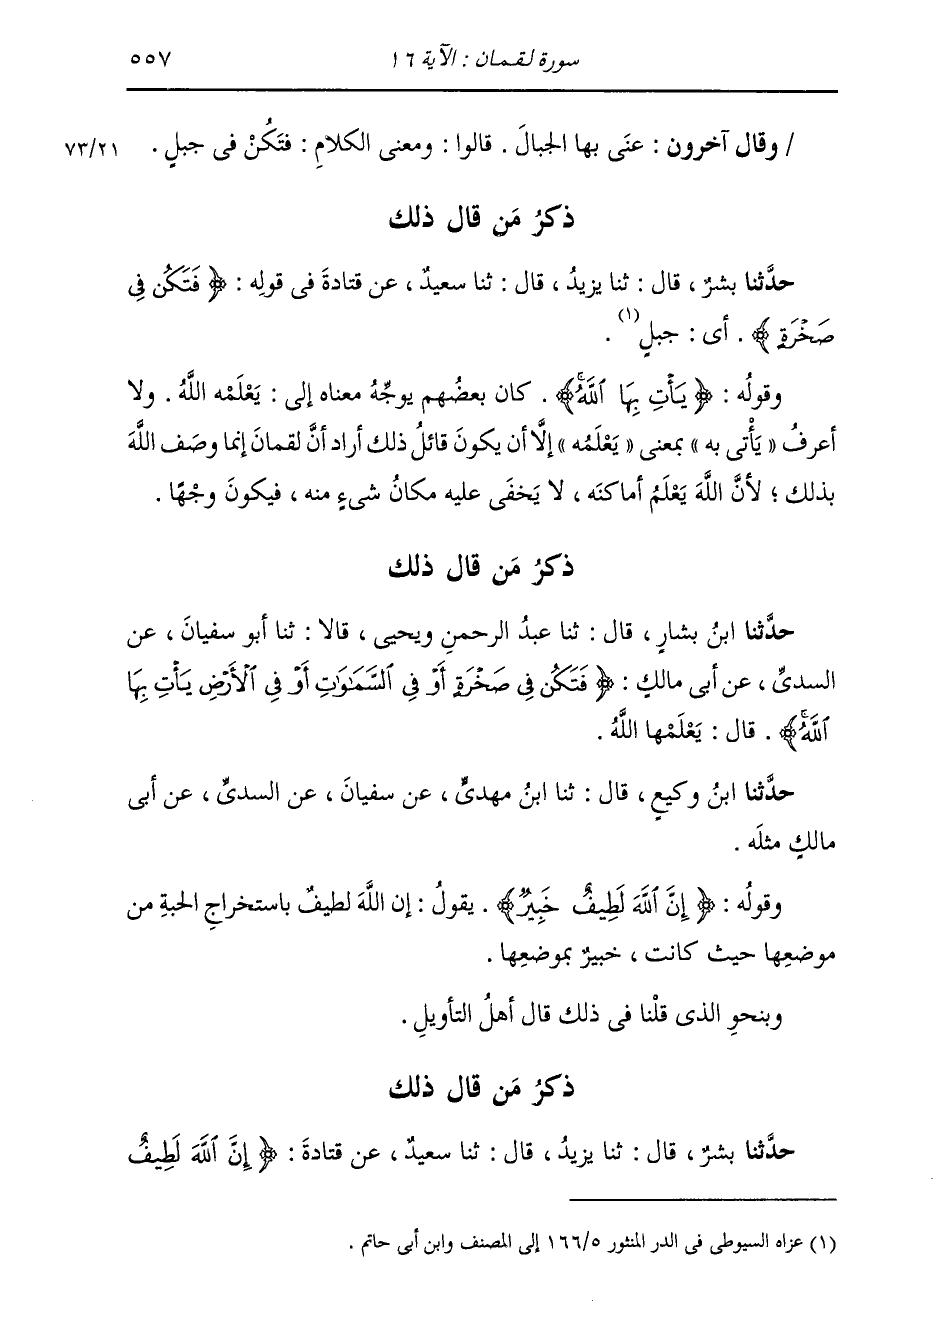 سورة لقمان : الآية ١٦ ٥٥٧
/ وقال آخرون : عنَى بها الجبالَ . قالوا : ومعنى الكلامِ : فتَكُنْ فى جبلٍ . ٧٣/٢١
ذكرُ مَن قال ذلك
حدَّثنا بشرٌ ، قال : ثنا يزيدُ ، قال : ثنا سعيدٌ ، عن قتادةَ فى قولِه : ﴿ فَتَكُن فِى
صَخْرَةٍ ﴾ . أى : جبلٍ (١) .
وقولُه : ﴿ يَأْتِ بِهَا ٱللَّهُۚ ﴾ . كان بعضُهم يوجِّهُ معناه إلى : يَعْلَمْه اللَّهُ . ولا
أعرفُ « يَأْتى به » بمعنى « يَعْلَمُه » إلَّا أن يكونَ قائلُ ذلك أراد أنَّ لقمانَ إنما وصَف اللَّهَ
بذلك ؛ لأنَّ اللَّهَ يَعْلَمُ أماكنَه ، لا يَخفَى عليه مكانُ شىءٍ منه ، فيكونَ وجْهًا .
ذكرُ مَن قال ذلك
حدَّثنا ابنُ بشارٍ ، قال : ثنا عبدُ الرحمنِ ويحيى ، قالا : ثنا أبو سفيانَ ، عن
السدىِّ ، عن أبى مالكٍ : ﴿ فَتَكُن فِى صَخْرَةٍ أَوْ فِى ٱلسَّمَٰوَٰتِ أَوْ فِى ٱلْأَرْضِ يَأْتِ بِهَا
ٱللَّهُۚ ﴾ . قال : يَعْلَمْها اللَّهُ .
حدَّثنا ابنُ وكيعٍ ، قال : ثنا ابنُ مهدىٍّ ، عن سفيانَ ، عن السدىِّ ، عن أبى
مالكٍ مثلَه .
وقولُه : ﴿ إِنَّ ٱللَّهَ لَطِيفٌ خَبِيرٌ ﴾ . يقولُ : إن اللَّهَ لطيفٌ باستخراجِ الحبةِ من
موضعِها حيث كانت ، خبيرٌ بموضعِها .
وبنحوِ الذى قلْنا فى ذلك قال أهلُ التأويلِ .
ذكرُ مَن قال ذلك
حدَّثنا بشرٌ ، قال : ثنا يزيدُ ، قال : ثنا سعيدٌ ، عن قتادةَ : ﴿ إِنَّ ٱللَّهَ لَطِيفٌ
(١) عزاه السيوطى فى الدر المنثور ١٦٦/٥ إلى المصنف وابن أبى حاتم .